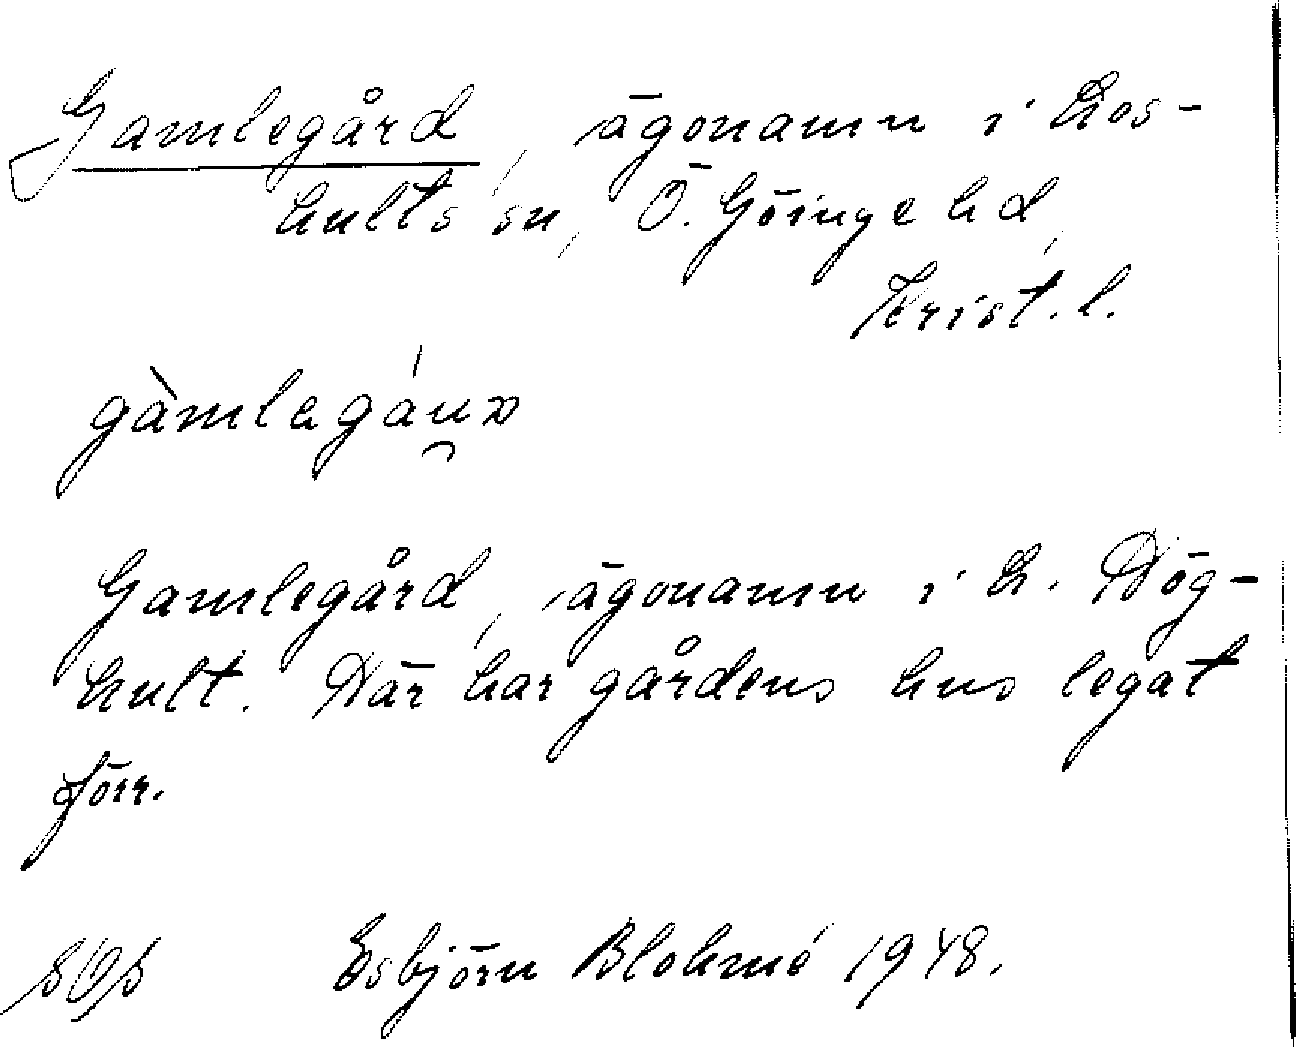 Gamlegård, ägonamn i Los-
hults sn, Ö. Göinge hd,
Krist. l.
Gamlegård, ägonamn i L. Dög-
hult. Där har gårdens hus legat
förr.
Esbjörn Blohmé 1948.